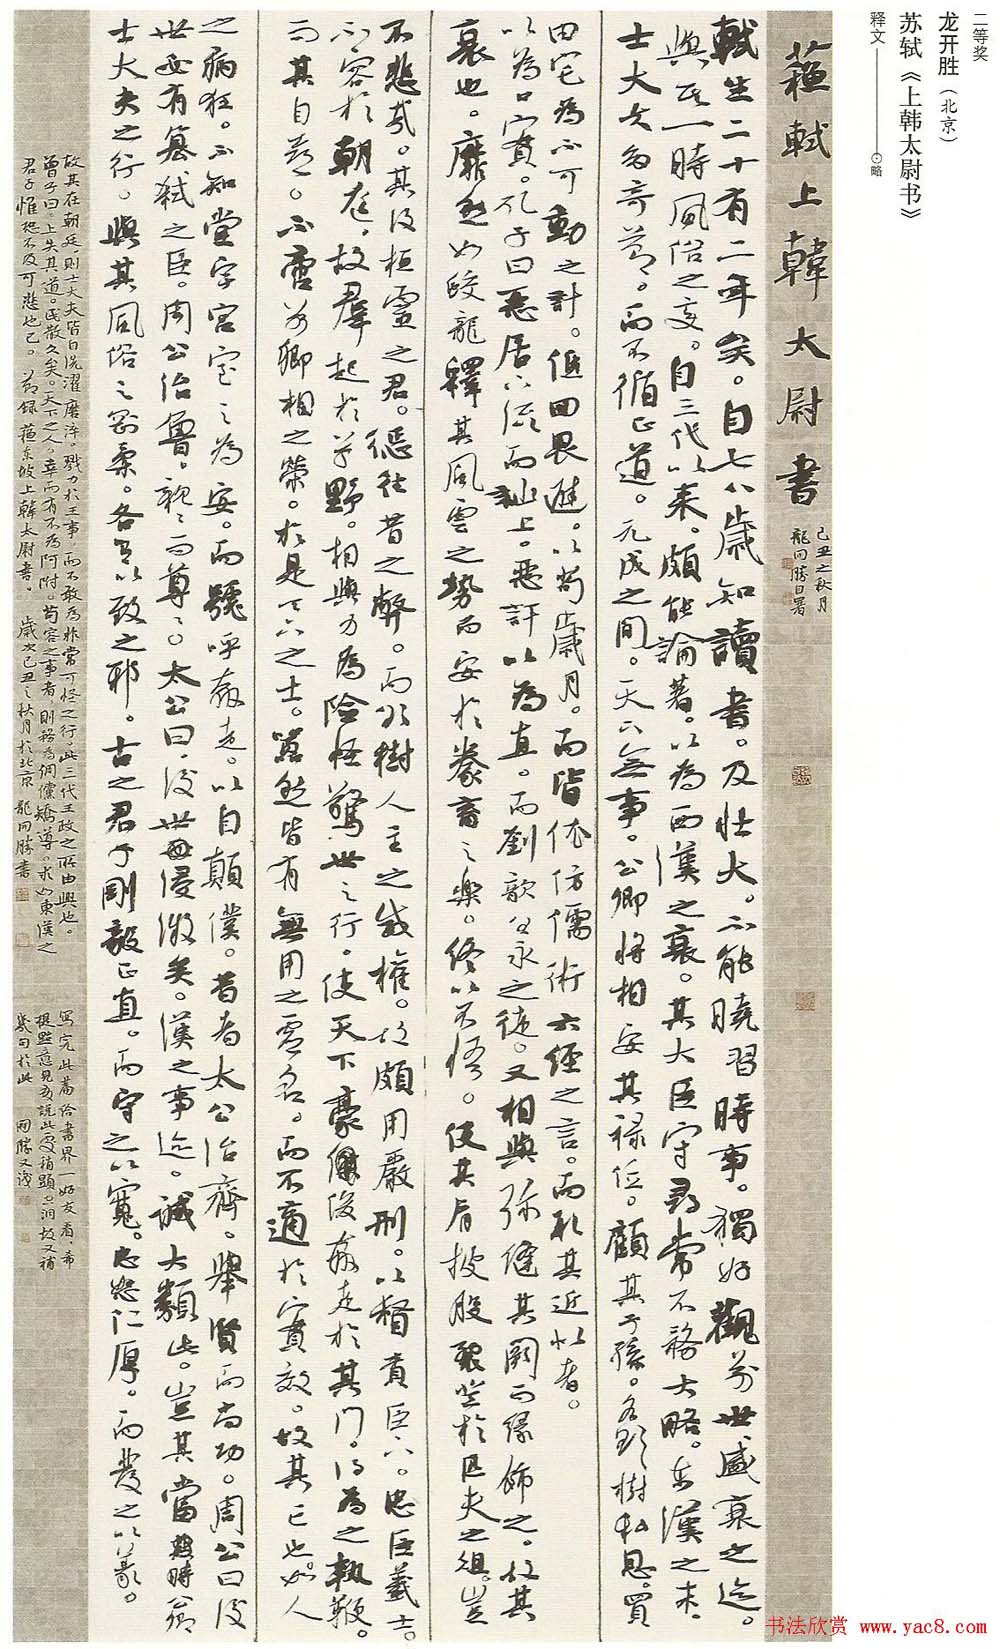 二等奖
龙开胜（北京）
苏轼《上韩太尉书》
释文————⊙略
蘓軾上韓太尉書
己丑之秋月
龍開勝自署
軾生二十有二年矣。自七八歲知讀書。及壯大。不能曉習時事。獨好觀前世盛衰之迹。
與其一時風俗之變。自三代以來。頗能論著。以為西漢之衰。其大臣守尋常不務大略。東漢之末。
士大夫多奇節。而不循正道。元成之間。天下無事。公卿將相安其祿位。顧其子孫。各欲樹私恩。買
田宅為不可動之計。低回畏避。以苟歲月。而皆依仿儒術六經之言。而取其近似者。
以為口實。孔子曰惡居下流而訕上。惡訐以為直。而劉歆谷永之徒。又相與彌縫其闕而緣飾之。故其
衰也。靡然如蛟龍釋其風雲之勢而安於豢畜之樂。終以不悟。使其肩披股裂登於匹夫之俎。豈
不悲哉。其後桓靈之君。懲往昔之弊。而欲樹人主之威權。故頗用嚴刑。以督責臣下。忠臣義士。
不容於朝廷。故群起於草野。相與力為險怪驚世之行。使天下豪俊奔走於其門。得為之執鞭。
而其自喜。不啻若卿相之榮。於是天下之士。囂然皆有無用之虛名。而不適於實效。故其亡也。如人
之病狂。不知堂宇宮室之為安。而號呼奔走。以自顛僕。昔者太公治齊。舉賢而尚功。周公曰後
世必有篡弒之臣。周公治魯。親親而尊尊。太公曰。後世浸微矣。漢之事迹。誠大類此。豈其當時公卿
士大夫之行。與其風俗之剛柔。各有以致之邪。古之君子剛毅正直。而守之以寬。忠恕仁厚。而發之以義。
故其在朝廷。則士大夫皆自洗濯磨淬。戮力於王事。而不敢為非常可怪之行。此三代王政之所由興也。
曾子曰。上失其道。民散久矣。天下之人。幸而有不為阿附。苟容之事者。則務為倜儻矯導。求如東漢之
君子惟恐不及可悲也已。節録蘓東坡上韓太尉書。歲次己丑之秋月於北京龍開勝書
寫完此篇給書界一好友看，希
提點意見友說此處稍顯空洞故又補
幾句於此 開勝又識
书法欣赏 www.yac8.com